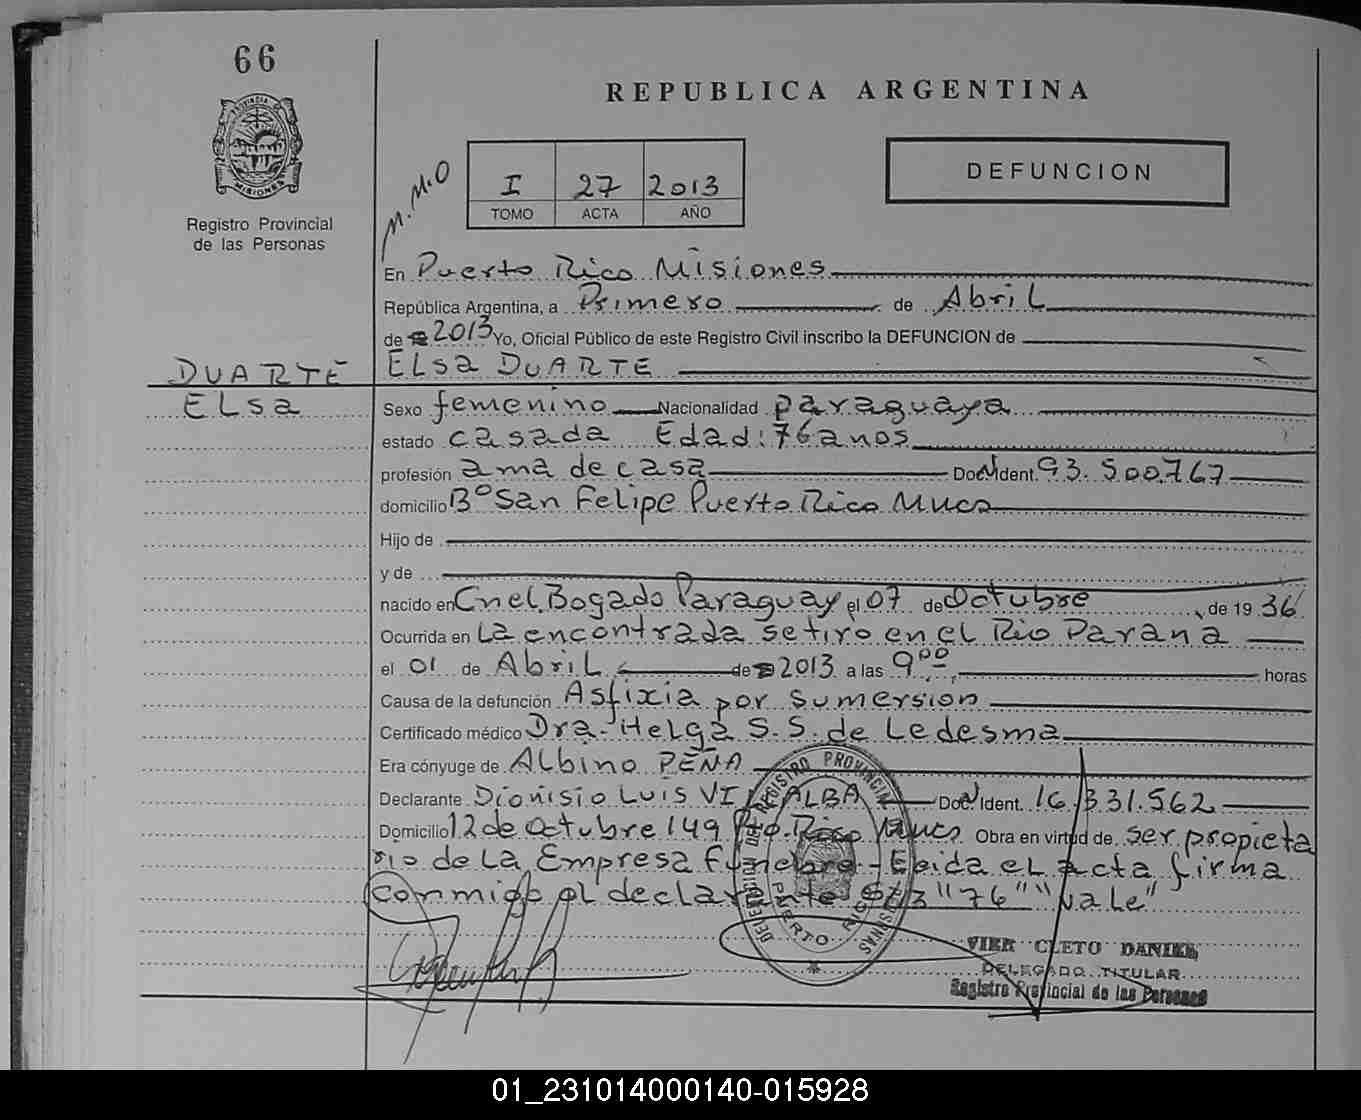 66
PROVINCIA DE
MISIONES
Registro Provincial
de las Personas
REPUBLICA ARGENTINA
M.M.O
I 27 2013
TOMO ACTA AÑO
DEFUNCION
En Puerto Rico Misiones
República Argentina, a Primero de Abril
de 2013 Yo, Oficial Público de este Registro Civil inscribo la DEFUNCION de
DUARTE ELsa DUARTE
ELsa
Sexo femenino Nacionalidad paraguaya
estado casada Edad: 76 anos
profesión ama de casa Doc. Ident. 93.500.767
domicilio Bº San Felipe Puerto Rico Mnes
Hijo de
y de
nacido en Cnel. Bogado Paraguay el 07 de Octubre de 19 36
Ocurrida en La encontrada se tiro en el Rio Parana
el 01 de Abril de 2013 a las 9 00 horas
Causa de la defunción Asfixia por sumersion
Certificado médico Dra. Helga S. S. de Ledesma
Era cónyuge de Albino PEÑA
Declarante Dionisio Luis VILLALBA Doc. Ident. 16.331.562
Domicilio 12 de Octubre 149 Pto. Rico Mnes Obra en virtud de ser propieta
rio de La Empresa funebre - Leida el acta firma
conmigo el declarante "76" "vale"
DELEGACION DEL REGISTRO PROVINCIAL PERSONAS
PUERTO RICO
VIER CLETO DANIEL
DELEGADO TITULAR
Registro Provincial de las Personas
01_231014000140-015928